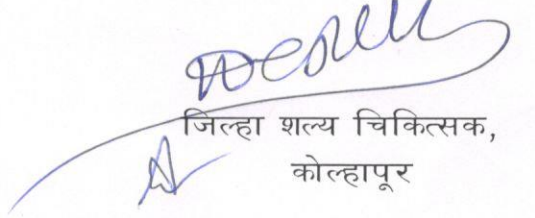 जिल्हा शल्य चिकित्सक,
कोल्हापूर